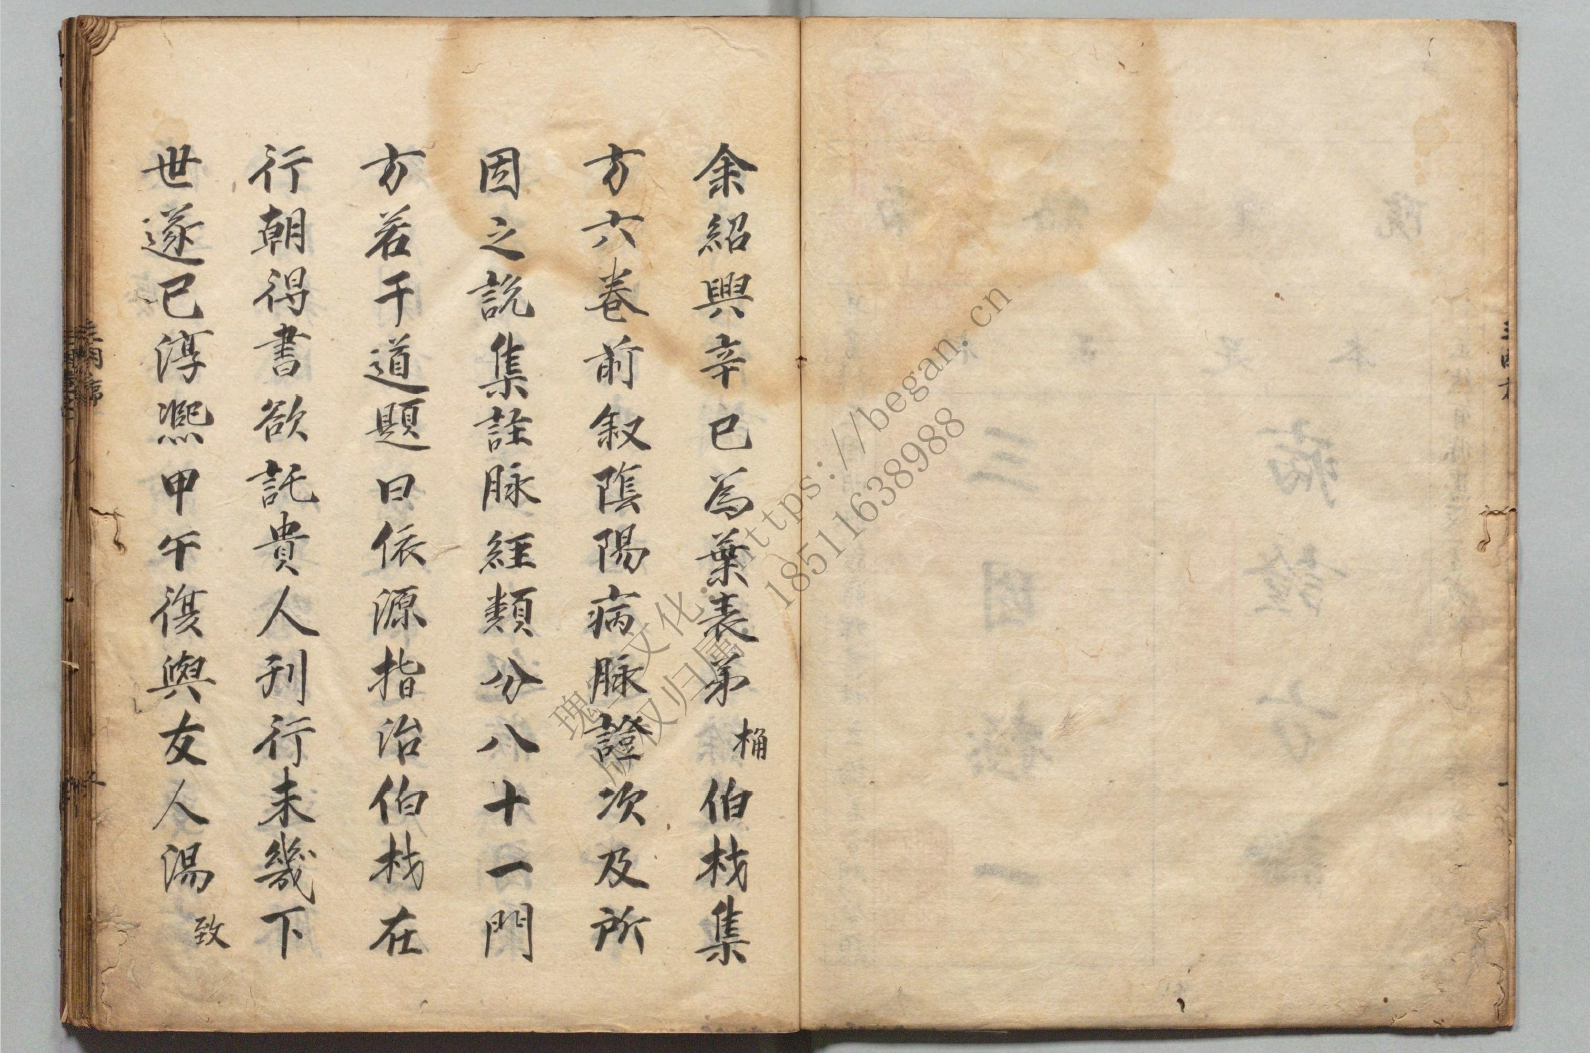 余紹興辛巳為葉表弟桷伯材集
方六卷前叙陰陽病脉證次及所
因之說集註脉經類分八十一門
方若干道題曰依源指治伯材在
行朝得書欲託貴人刊行未幾下
世遂已淳熈甲午復與友人湯致
瑰 文化: https://began.cn
版权归属 18511638988
三因
病證方
一